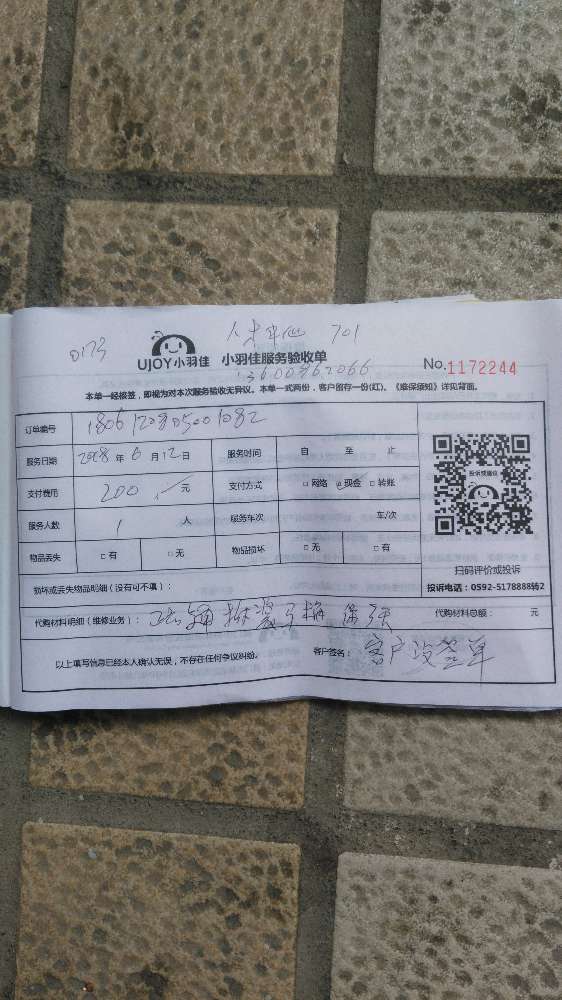 0173
701
UJOY小羽佳 小羽佳服务验收单
No.1172244
本单一经接签，即视为对本次服务验收无异议。本单一式两份，客户留存一份(红)。《维保须知》详见背面。
订单编号
服务日期 年 6 月 12 日 服务时间 自 至 止
支付费用 200 元 支付方式 □网络 □现金 □转账
投诉或建议
服务人数 1 人 服务车次 车/次
物品丢失 □有 □无 物品损坏 □无 □有
扫码评价或投诉
损坏或丢失物品明细（没有可不填）：
投诉电话：0592-5178888转2
代购材料明细（维修业务）：
代购材料总额： 元
以上填写信息已经本人确认无误，不存在任何争议纠纷。 客户签名： 客户没签单